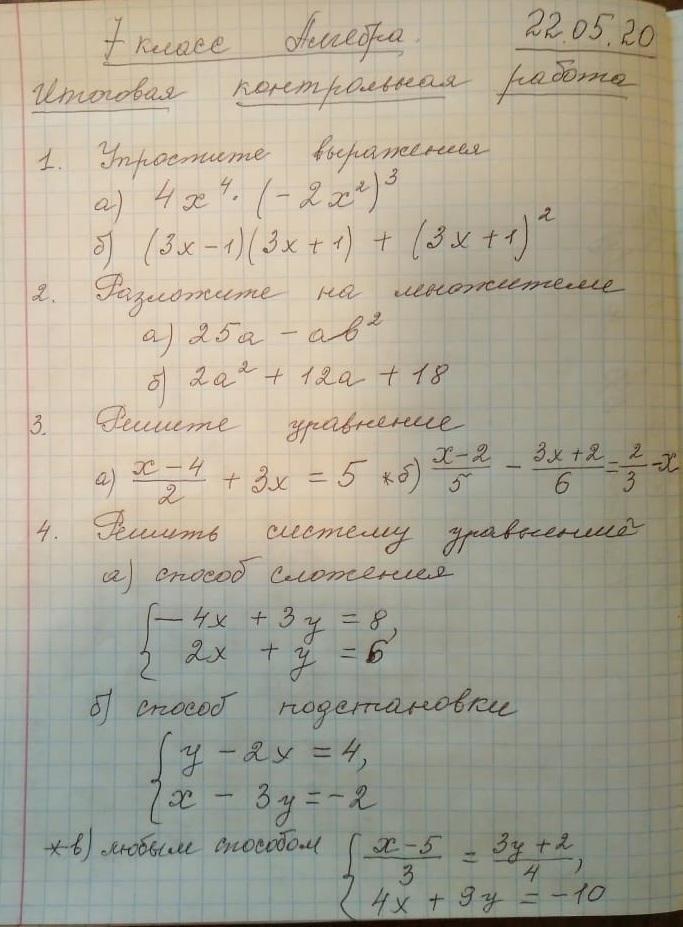 7 класс Алгебра. 22.05.20
Итоговая контрольная работа
1. Упростите выражения
а) 4x⁴ · (-2x²)³
б) (3x-1)(3x+1) + (3x+1)²
2. Разложите на множители
а) 25a - ab²
б) 2a² + 12a + 18
3. Решите уравнение
а) (x-4)/2 + 3x = 5 *б) (x-2)/5 - (3x+2)/6 = 2/3 - x
4. Решить систему уравнений
а) способ сложения
{ -4x + 3y = 8,
2x + y = 6
б) способ подстановки
{ y - 2x = 4,
x - 3y = -2
*в) любым способом { (x-5)/3 = (3y+2)/4,
4x + 9y = -10